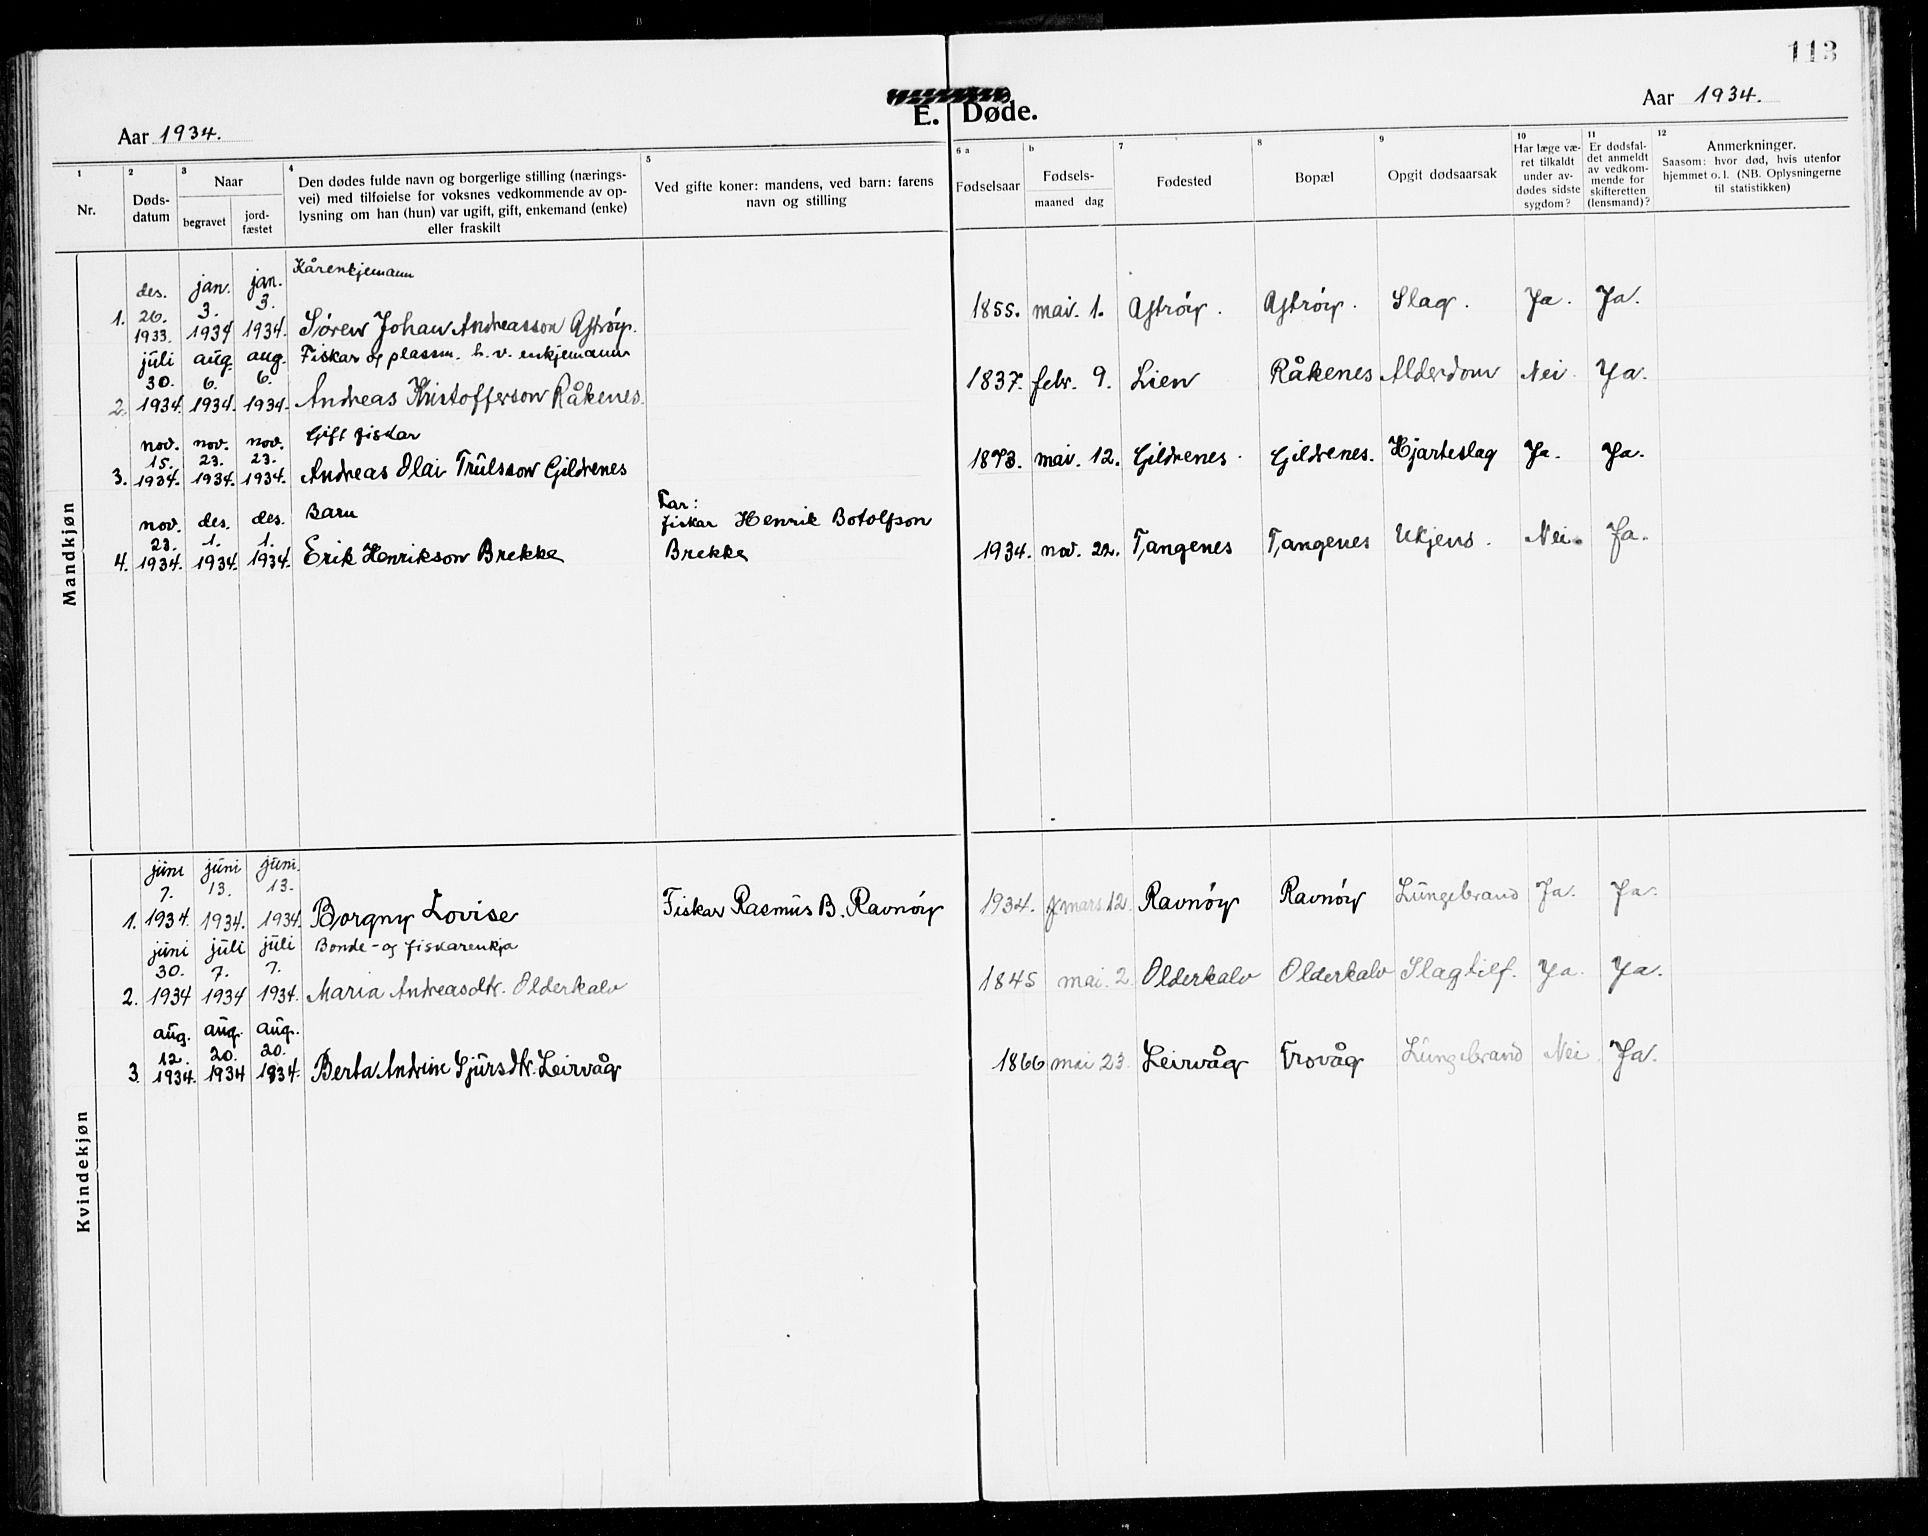 113
E. Døde.
Aar 1934.
Aar 1934.
1
Nr.
2
Døds-
datum
3
Naar
begravet
jord-
fæstet
4
Den dødes fulde navn og borgerlige stilling (nærings-
vei) med tilføielse for voksnes vedkommende av op-
lysning om han (hun) var ugift, gift, enkemand (enke)
eller fraskilt
5
Ved gifte koner: mandens, ved barn: farens
navn og stilling
6 a
Fødselsaar
b
Fødsels-
maaned dag
7
Fødested
8
Bopæl
9
Opgit dødsaarsak
10
Har læge væ-
ret tilkaldt
under av-
dødes sidste
sygdom?
11
Er dødsfal-
det anmeldt
av vedkom-
mende for
skifteretten
(lensmand)?
12
Anmerkninger.
Saasom: hvor død, hvis utenfor
hjemmet o. l. (NB. Oplysningerne
til statistikken)
Mandkjøn
1. des. 26. 1933. jan. 3. 1934 jan. 3. 1934.
Kårenkjemann
Søren Johan Andreasson Ystrøy.
1855. mai. 1. Ystrøy. Ystrøy. Slag. Ja. Ja.
2. juli 30. 1934. aug. 6. 1934. aug. 6. 1934.
Fiskar og plassm. h. v. enkjemann
Andreas Kristofferson Råkenes.
1837. febr. 9. Lien Råkenes Alderdom Nei. Ja.
3. nov. 15. 1934. nov. 23. 1934. nov. 23. 1934.
Gift fiskar
Andreas Olai Trulsson Gildrenes
1873. mai. 12. Gildrenes. Gildrenes. Hjarteslag Ja. Ja.
4. nov. 23. 1934. des. 1. 1934. des. 1. 1934.
Barn
Erik Henrikson Brekke
Far:
fiskar Henrik Botolfson
Brekke
1934. nov. 22. Tangenes Tangenes Ukjend. Nei. Ja.
Kvindekjøn
1. juni 7. 1934. juni 13. 1934. juni. 13. 1934.
Borgny Lovise
Fiskar Rasmus B. Ravnøy
1934. mars. 12. Ravnøy Ravnøy Lungebrand Ja. Ja.
2. juni 30. 1934 juli 7. 1934 juli 7. 1934.
Bonde- og fiskarenkja
Maria Andreasdtr. Olderkalv
1845 mai. 2. Olderkalv Olderkalv Slagtilf. Ja. Ja.
3. aug. 12. 1934. aug. 20. 1934 aug. 20. 1934.
Berta Andrine Sjursdtr. Leirvåg
1866 mai 23. Leirvåg Trovåg Lungebrand Nei Ja.